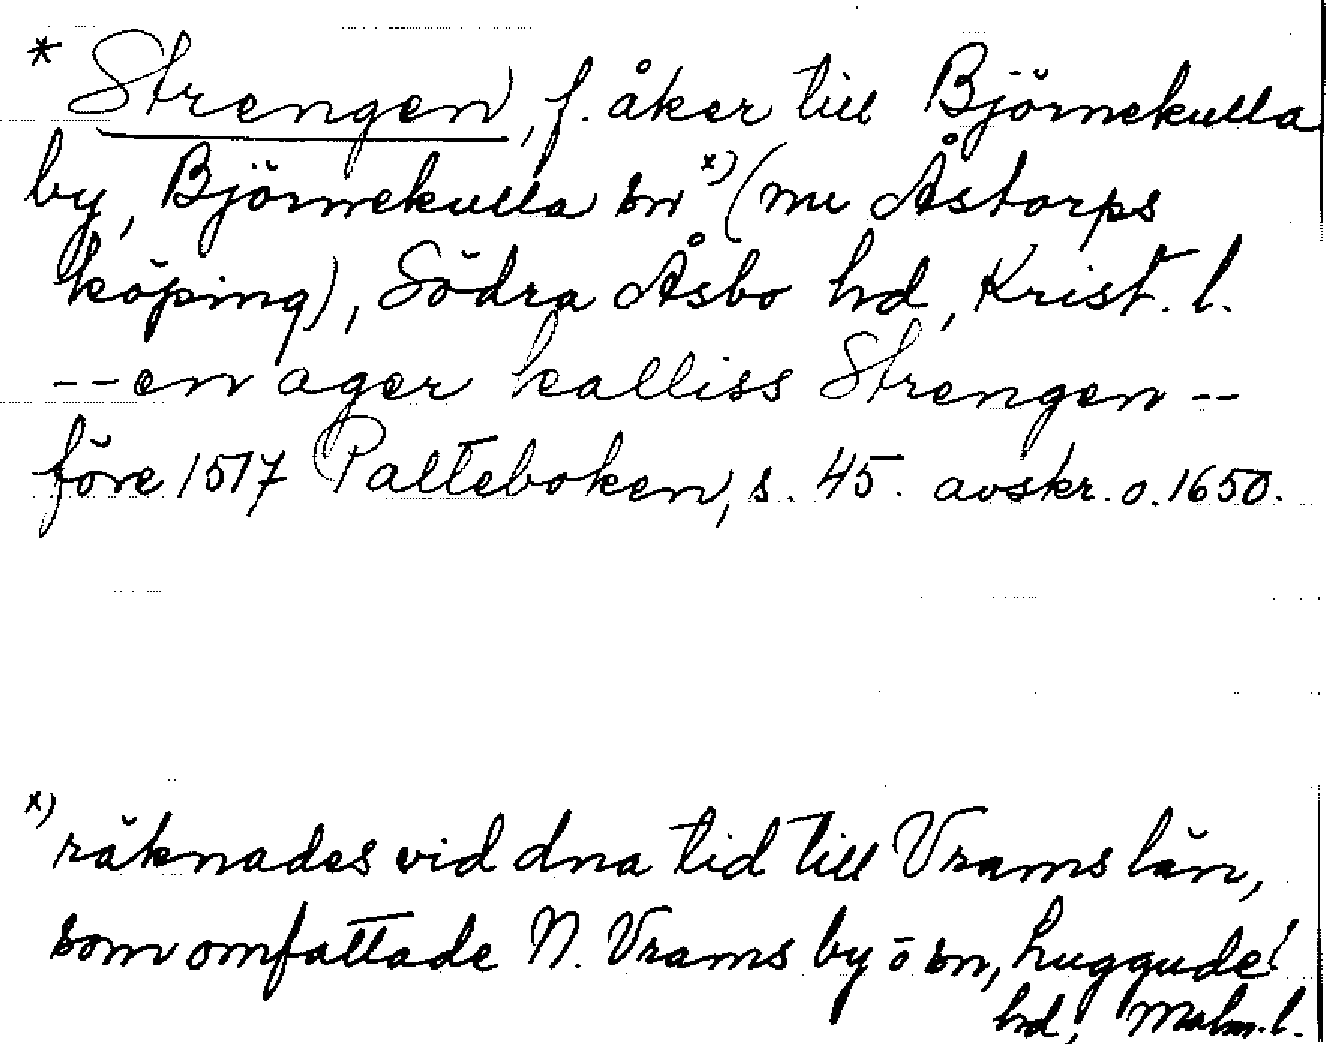 * Strengen, f. åker till Björnekulla
by, Björnekulla sn x) (nu Åstorps
köping), Södra Åsbo hd, Krist. l.
-- en ager kalliss Strengen --
före 1517 Palteboken, s. 45. avskr. o. 1650.
x) räknades vid dna tid till Vrams län,
som omfattade N. Vrams by o sn, Luggude!
hd, Malm. l.